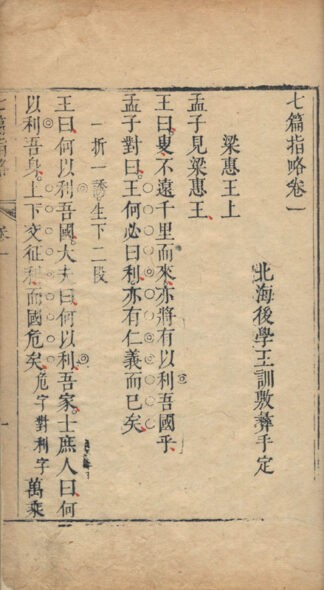 七篇指略卷一
北海後學王訓敷彝手定
梁惠王上
孟子見梁惠王
王曰叟不遠千里而來亦將有以利吾國乎
孟子對曰王何必曰利亦有仁義而已矣
一折一誘生下二段
王曰何以利吾國大夫曰何以利吾家士庶人曰何
以利吾身上下交征利而國危矣危字對利字萬乘